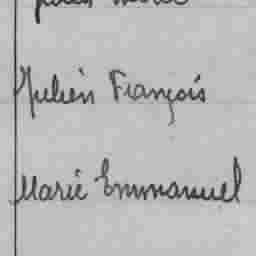 Julien François
Marie Emmanuel